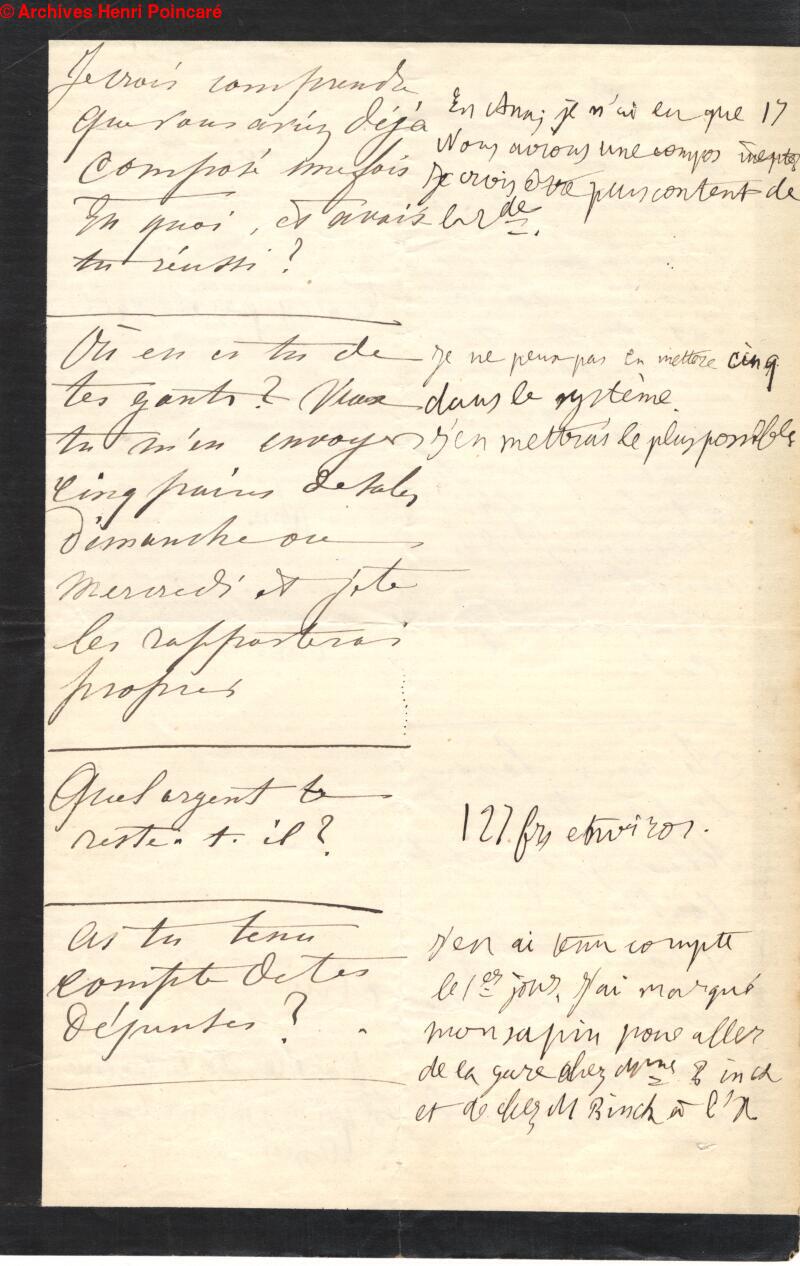 © Archives Henri Poincaré
Je crois comprendre
que vous aviez déjà
composé une fois
En quoi, et avais
tu réussi ?
En Ana, je n'ai eu que 17
Nous avons une compos ineptes
Je crois être plus content de
la 2de.
Où en es tu de
tes gants ? Veux
tu m'en envoyer
cinq paires de sales
Dimanche ou
Mercredi et je te
les rapporterai
propres
Je ne peux pas en mettre cinq
dans le système.
J'en mettrais le plus possible
Quel argent te
reste-t-il ?
127 frs environ.
As tu tenu
compte de tes
dépenses ?
J'en ai tenu compte
le 1er jour, J'ai marqué
mon sapin pour aller
de la gare chez Mme Rinck
et de chez M Rinck à l'X